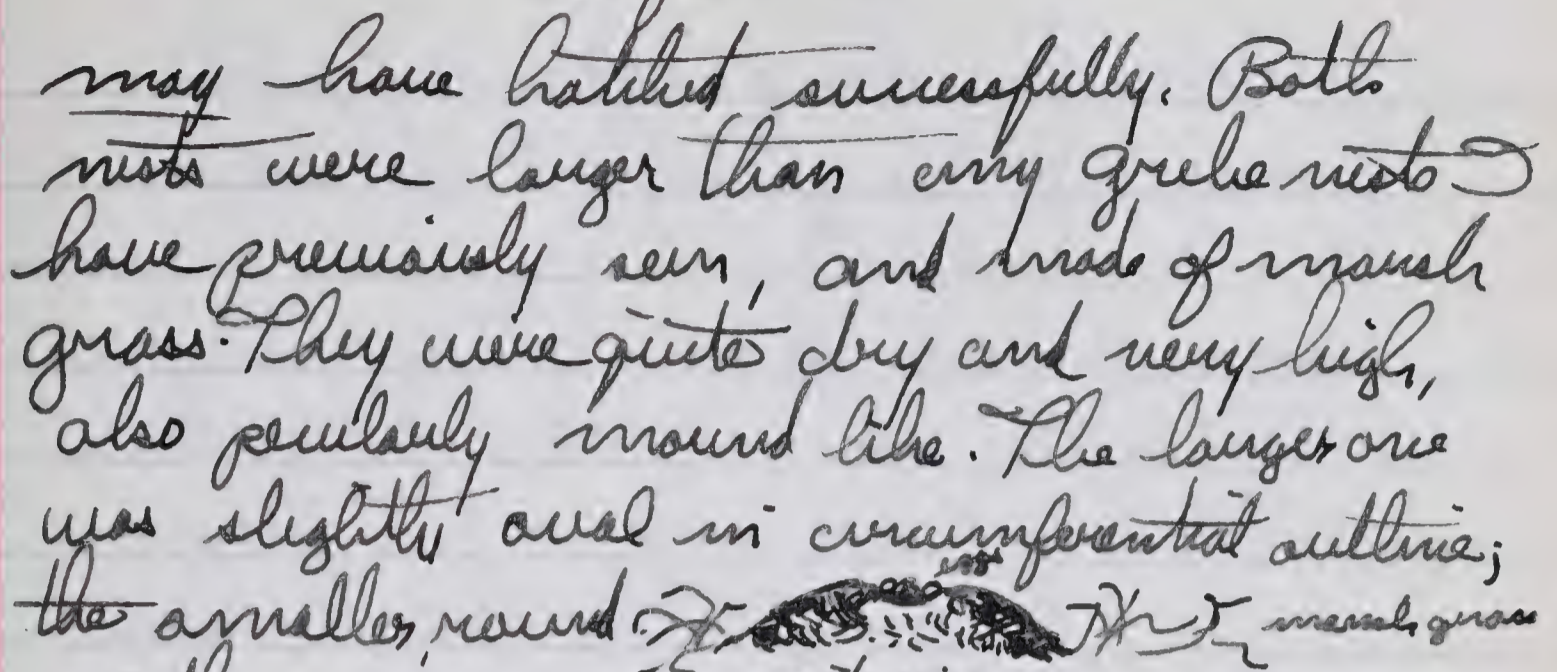 may have hatched successfully. Both
nests were larger than any grebe nests I
have previously seen, and made of marsh
grass. They were quite dry and very high,
also peculiarly mound like. The larger one
was slightly oval in circumferential outline;
eggs
the smaller, round. marsh grass